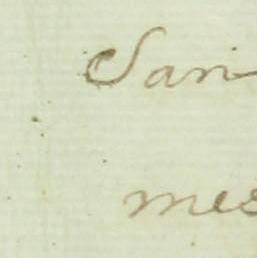 San
mes